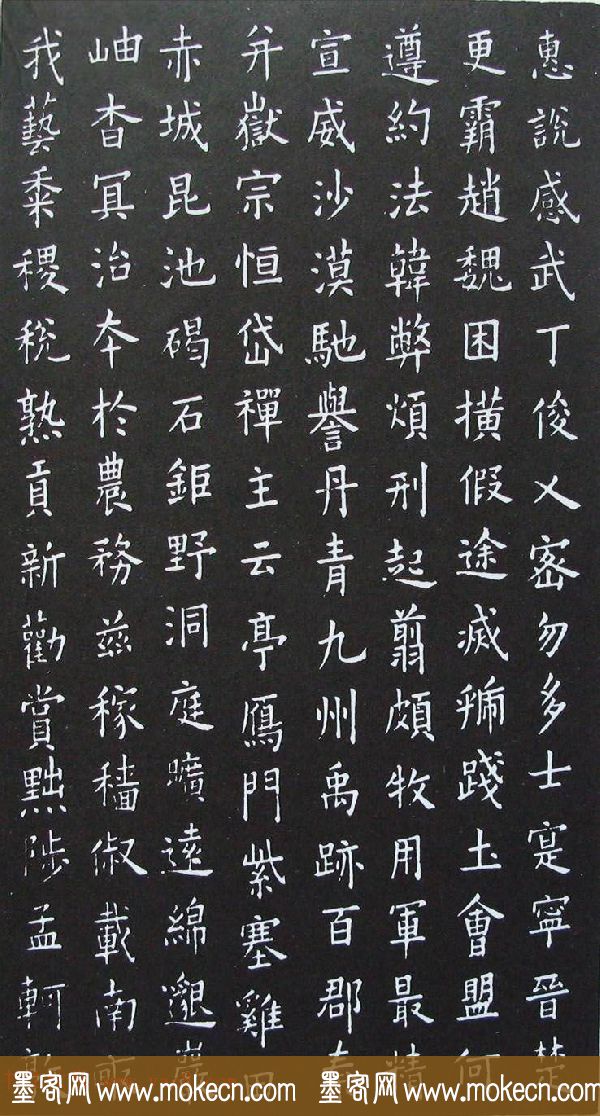 惠說感武丁俊乂密勿多士寔寧晉楚
更霸趙魏困橫假途滅虢踐土會盟何
遵約法韓弊煩刑起翦頗牧用軍最精
宣威沙漠馳譽丹青九州禹跡百郡秦
并嶽宗恒岱禪主云亭鴈門紫塞雞田
赤城昆池碣石鉅野洞庭曠遠綿邈巖
岫杳冥治夲於農務茲稼穡俶載南畝
我藝黍稷稅熟貢新勸賞黜陟孟軻敦
墨客网 www.mokecn.com 墨客网 www.mokecn.com